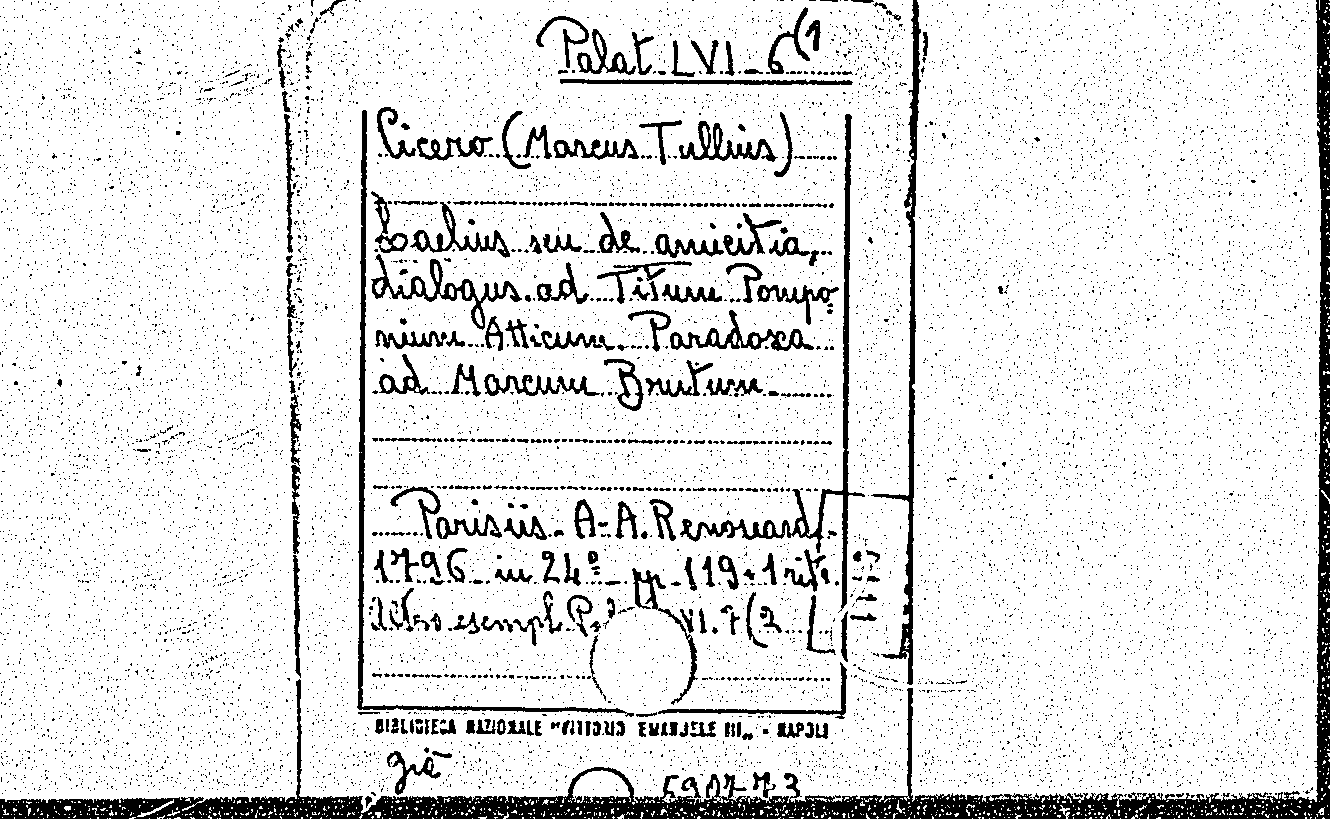 Palat. LVI - 6 (1
Cicero (Marcus Tullius)
Laelius seu de amicitia,
dialogus ad Titum Pompo=
nium Atticum. Paradoxa
ad Marcum Brutum.
Parisiis. A-A. Renouard.
1796 in 24º pp. 119+1 ritr.
Altro esempl. VI.7(2
BIBLIOTECA NAZIONALE "VITTORIO EMANUELE III" - NAPOLI
già